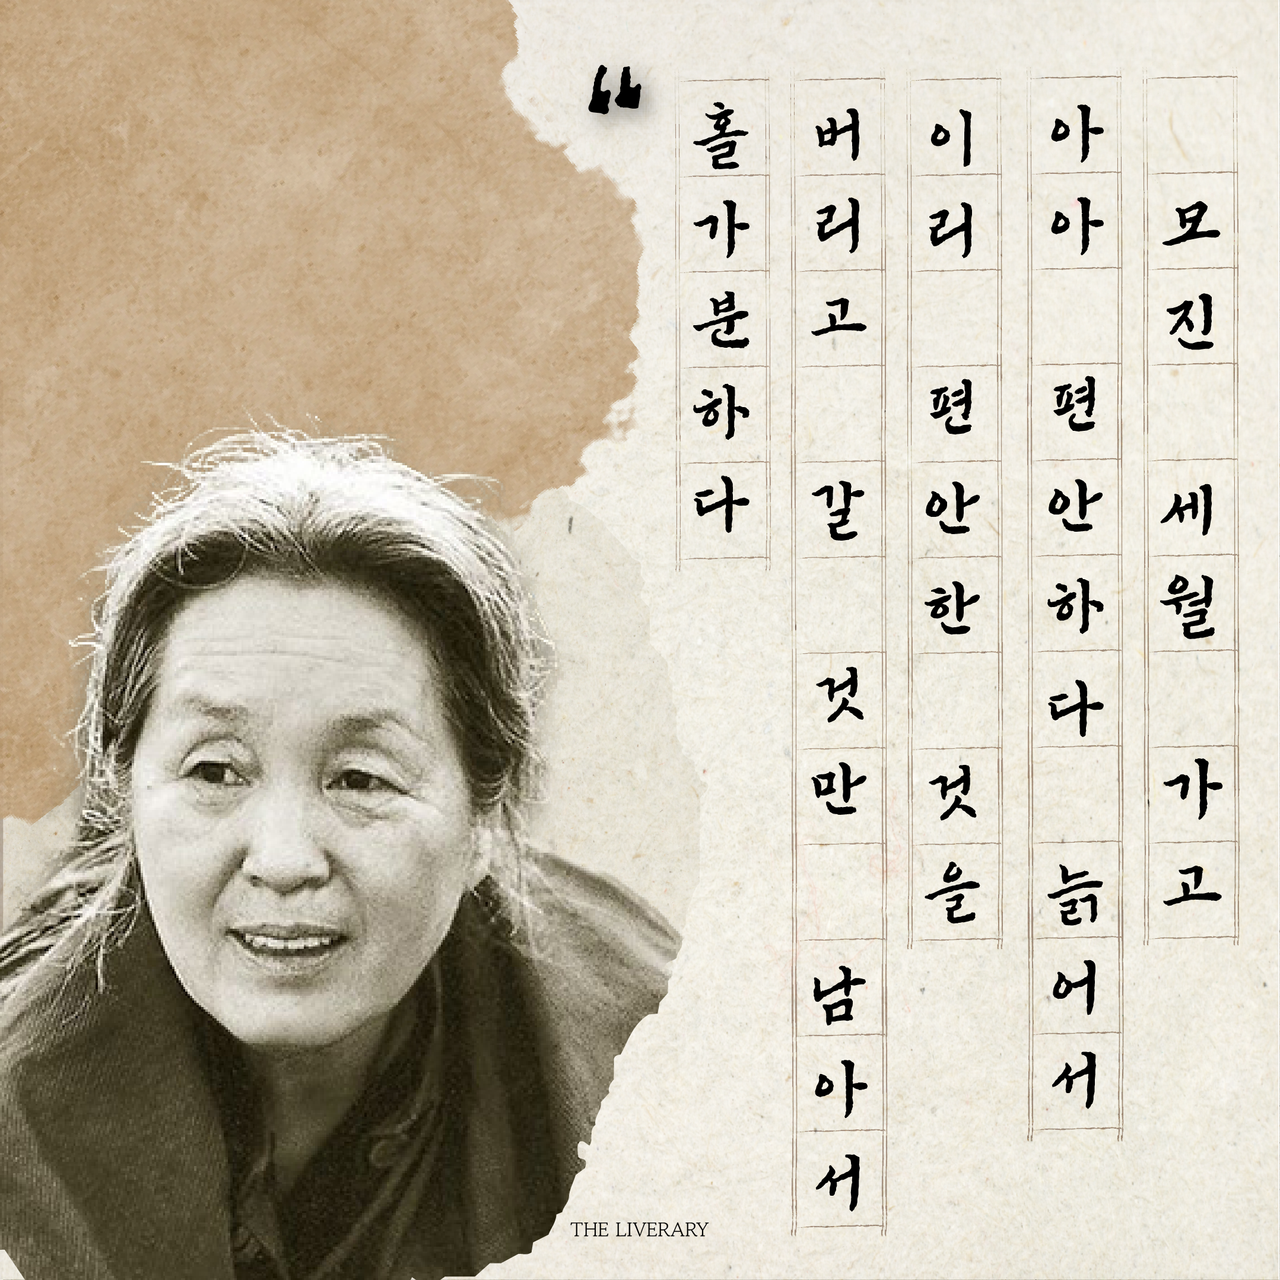 모진 세월 가고
아아 편안하다 늙어서
이리 편안한 것을
버리고 갈 것만 남아서
홀가분하다
“
THE LIVERARY